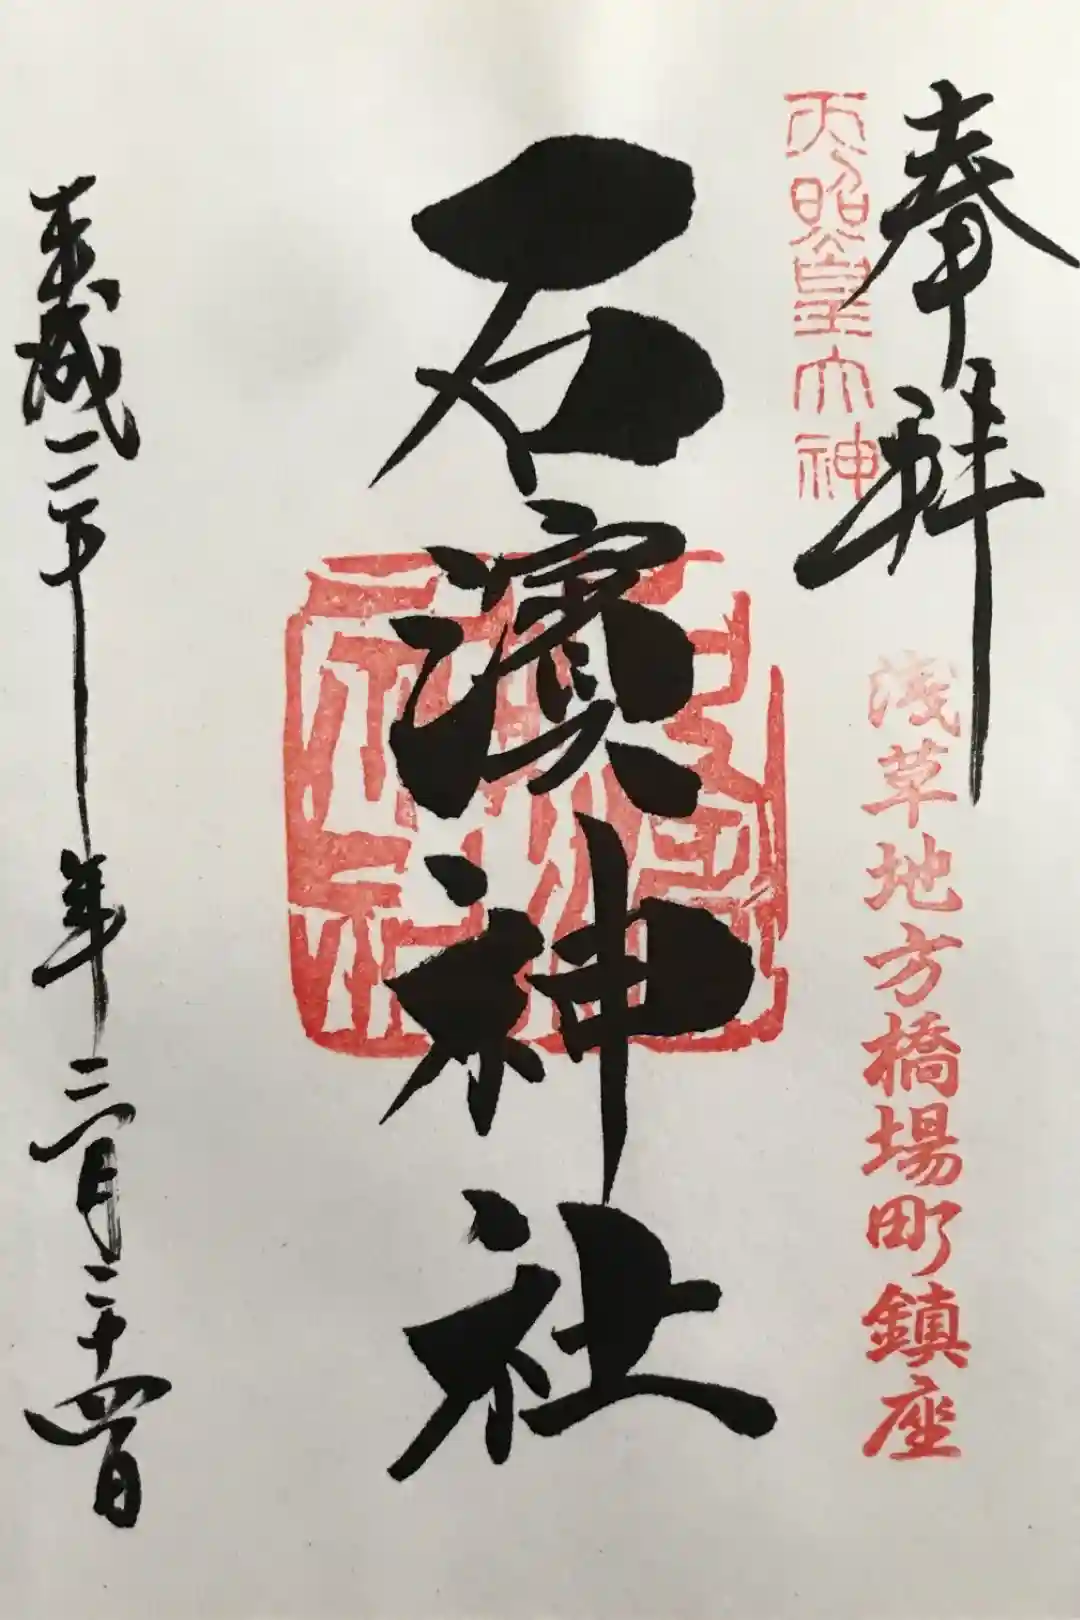 奉拝
天照皇大神
淺草地方橋場町鎮座
石濱神社
平成三十年三月二十四日